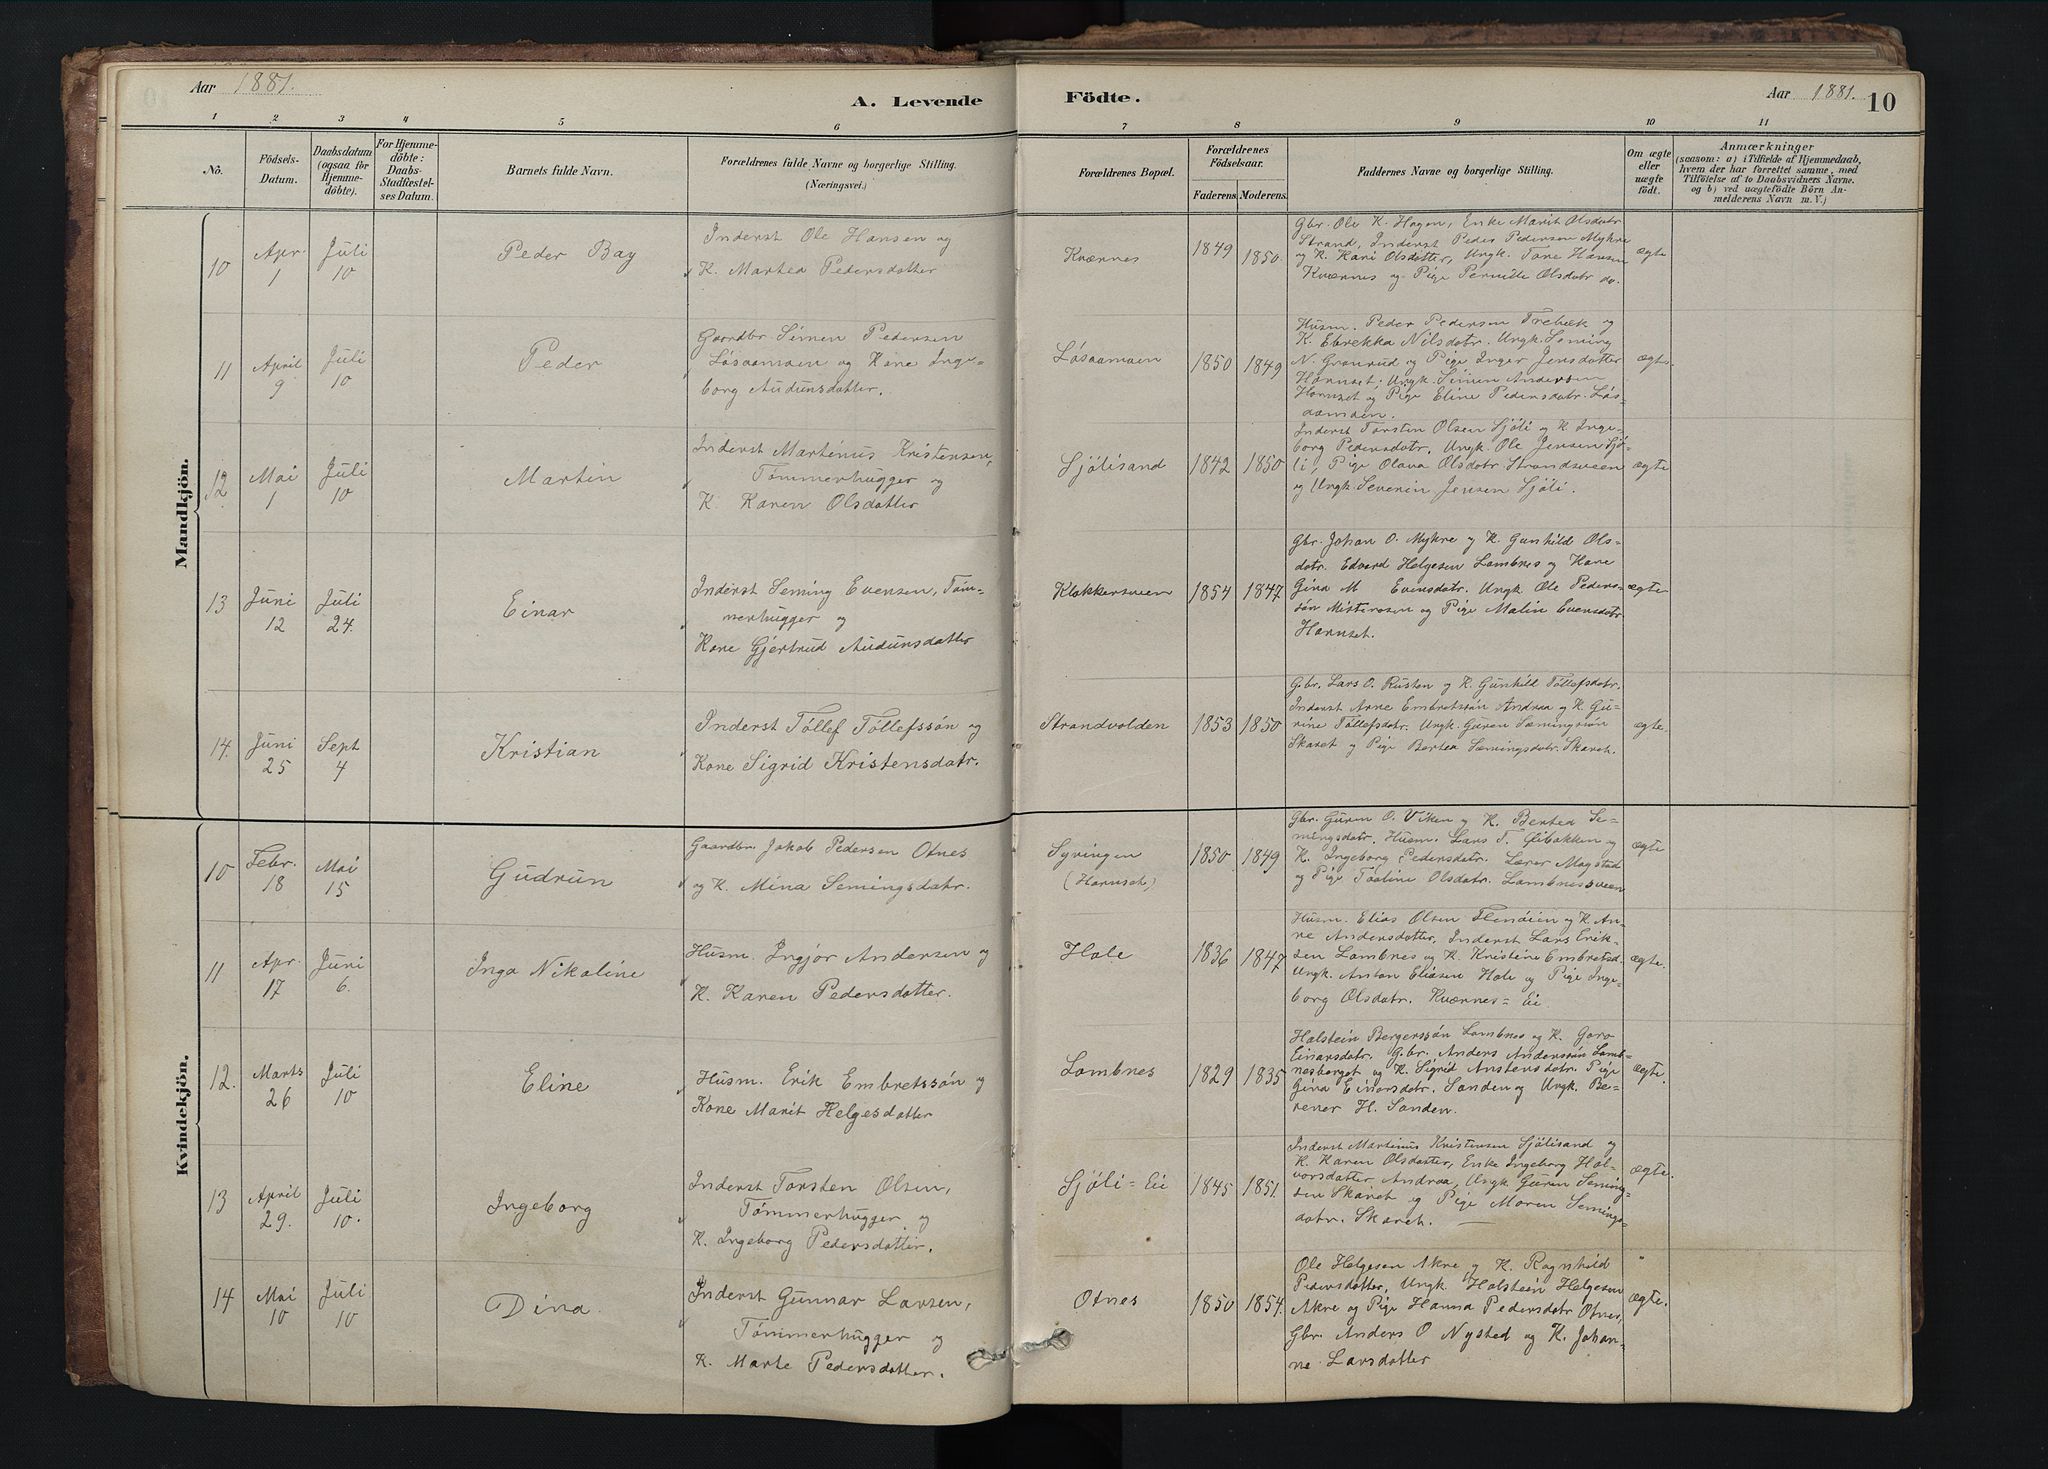 Aar 1881.
A. Levende
Födte.
Aar 1881.
10
1 2 3 4 5 6 7 8 9 10 11
No.
Födsels-
Datum.
Daabsdatum
(ogsaa for
Hjemme-
döbte).
For Hjemme-
döbte:
Daabs-
Stadfæstel-
ses Datum.
Barnets fulde Navn.
Forældrenes fulde Navne og borgerlige Stilling.
(Næringsvei.)
Forældrenes Bopæl.
Forældrenes
Födselsaar.
Faderens. Moderens.
Faddernes Navne og borgerlige Stilling.
Om ægte
eller
uægte
födt.
Anmærkninger
(saasom: a) i Tilfælde af Hjemmedaab,
hvem der har forrettet samme, med
Tilföielse af to Daabsvidners Navne.
og b) ved uægtefödte Börn An-
melderens Navn m. V.)
Mandkjön.
10
Apr.
1
Juli
10
Peder Bay
Inderst Ole Hansen og
K. Martea Pedersdatter
Kværnes
1849
1850.
Gbr. Ole K. Hagen, Enke Marit Olsdatr
Strand, Inderst Peder Pedersen Mykre
og K. Kari Olsdatter, Ungk. Tore Hansen
Kværnes og Pige Pernille Olsdatr do.
ægte
11
April
9
Juli
10
Peder
Gaardbr. Simen Pedersen
Løsaamoen og Kone Inge-
borg Audunsdatter.
Løsaamoen
1850
1849
Husm. Peder Pedersen Trebæk og
K. Ebrekka Nilsdatr. Ungk. Seming
N. Granrud og Pige Inger Jensdatter
Hornset; Ungk. Simen Andersen
Hornset og Pige Eline Pedersdatr. Løs-
aamoen.
ægte.
12
Mai
1
Juli
10
Martin
Inderst Martinus Kristensen,
Tømmerhugger og
K. Karen Olsdatter
Sjölisand
1842
1850
Inderst Torsten Olsen Sjöli og K. Inge-
borg Pedersdatr. Ungk. Ole Jensen Sjö-
li, Pige Olava Olsdatr. Strandsveen
og Ungk. Severin Jensen Sjöli.
ægte
13
Juni
12
Juli
24.
Einar
Inderst Seming Evensen, Tøm-
merhugger og
Kone Gjertrud Audunsdatter
Klokkersveen
1854
1847
Gbr. Johan O. Mykre og K. Gunhild Ols-
datr. Edvard Helgesen Lombnes og Kone
Gina M Evensdatr. Ungk. Ole Peders-
sön Misterosen og Pige Malin Evensdatr.
Hornset.
ægte
14.
Juni
25
Sept
4
Kristian
Inderst Töllef Töllefssön og
Kone Sigrid Kristensdatr.
Strandvolden
1853
1850
Gbr. Lars O. Rusten og K. Gunhild Töllefsdatr.
Inderst Arne Embretssön Andraa og K. Gu-
rine Töllefsdatr. Ungk. Guren Sæmingssön
Skaret og Pige Bertea Sæmingsdatr. Skaret.
ægte.
Kvindekjön.
10
Febr.
18
Mai
15
Gudrun
Gaardbr. Jakob Pedersen Otnes
og K. Mina Semingsdatr.
Syringen
(Hornset)
1850
1849
Gbr. Guren O. Viken og K. Bertea Se-
mingsdatr. Husm. Lars T. Glibakken og
K. Ingeborg Pedersdatr. Lærer Magstad
og Pige Taaline Olsdatr. Lombnessveen
ægte
11
Apr.
17
Juni
6.
Inga Nikoline
Husm. Ingjor Andersen og
K. Karen Pedersdatter.
Hole
1836
1847
Husm. Elias Olsen Flenöien og K. An-
ne Andersdatter, Inderst Lars Erik-
sen Lombnes og K. Kristine Embretsd.
Ungk. Anton Eliasen Hole og Pige Inge-
borg Olsdatr. Kværnes-Ei
ægte.
12.
Marts
26
Juli
10
Eline
Husm. Erik Embretssön og
Kone Marit Helgesdatter
Lombnes
1829
1835
Halstein Bergerssön Lombnes og K. Goro
Einarsdatr. Gbr. Anders Anderssön Lomb-
nesberget og K. Sigrid Anstensdatr. Pige
Gina Einarsdatr. Sanden og Ungk. Be-
rener H. Sanden.
ægte.
13
April
29.
Juli
10.
Ingeborg
Inderst Torsten Olsen,
Tømmerhugger og
K. Ingeborg Pedersdatter.
Sjöli-Ei
1845
1851.
Inderst Martinus Kristensen Sjölisand og
K. Karen Olsdatter, Enke Ingeborg Hal-
vorsdatter Andraa, Ungk. Guren Seming-
sen Skaret og Pige Maren Semings-
datr. Skaret.
ægte.
14
Mai
10
Juli
10
Dina.
Inderst Gunnar Larsen,
Tømmerhugger og
K. Marte Pedersdatter.
Otnes
1850
1854.
Ole Helgesen Akre og K. Ragnhild
Pedersdatter, Ungk. Halstein Helgesen
Akre og Pige Hanna Pedersdatr Otnes,
Gbr. Anders O Nysted og K. Johan-
ne Larsdatter
ægte.